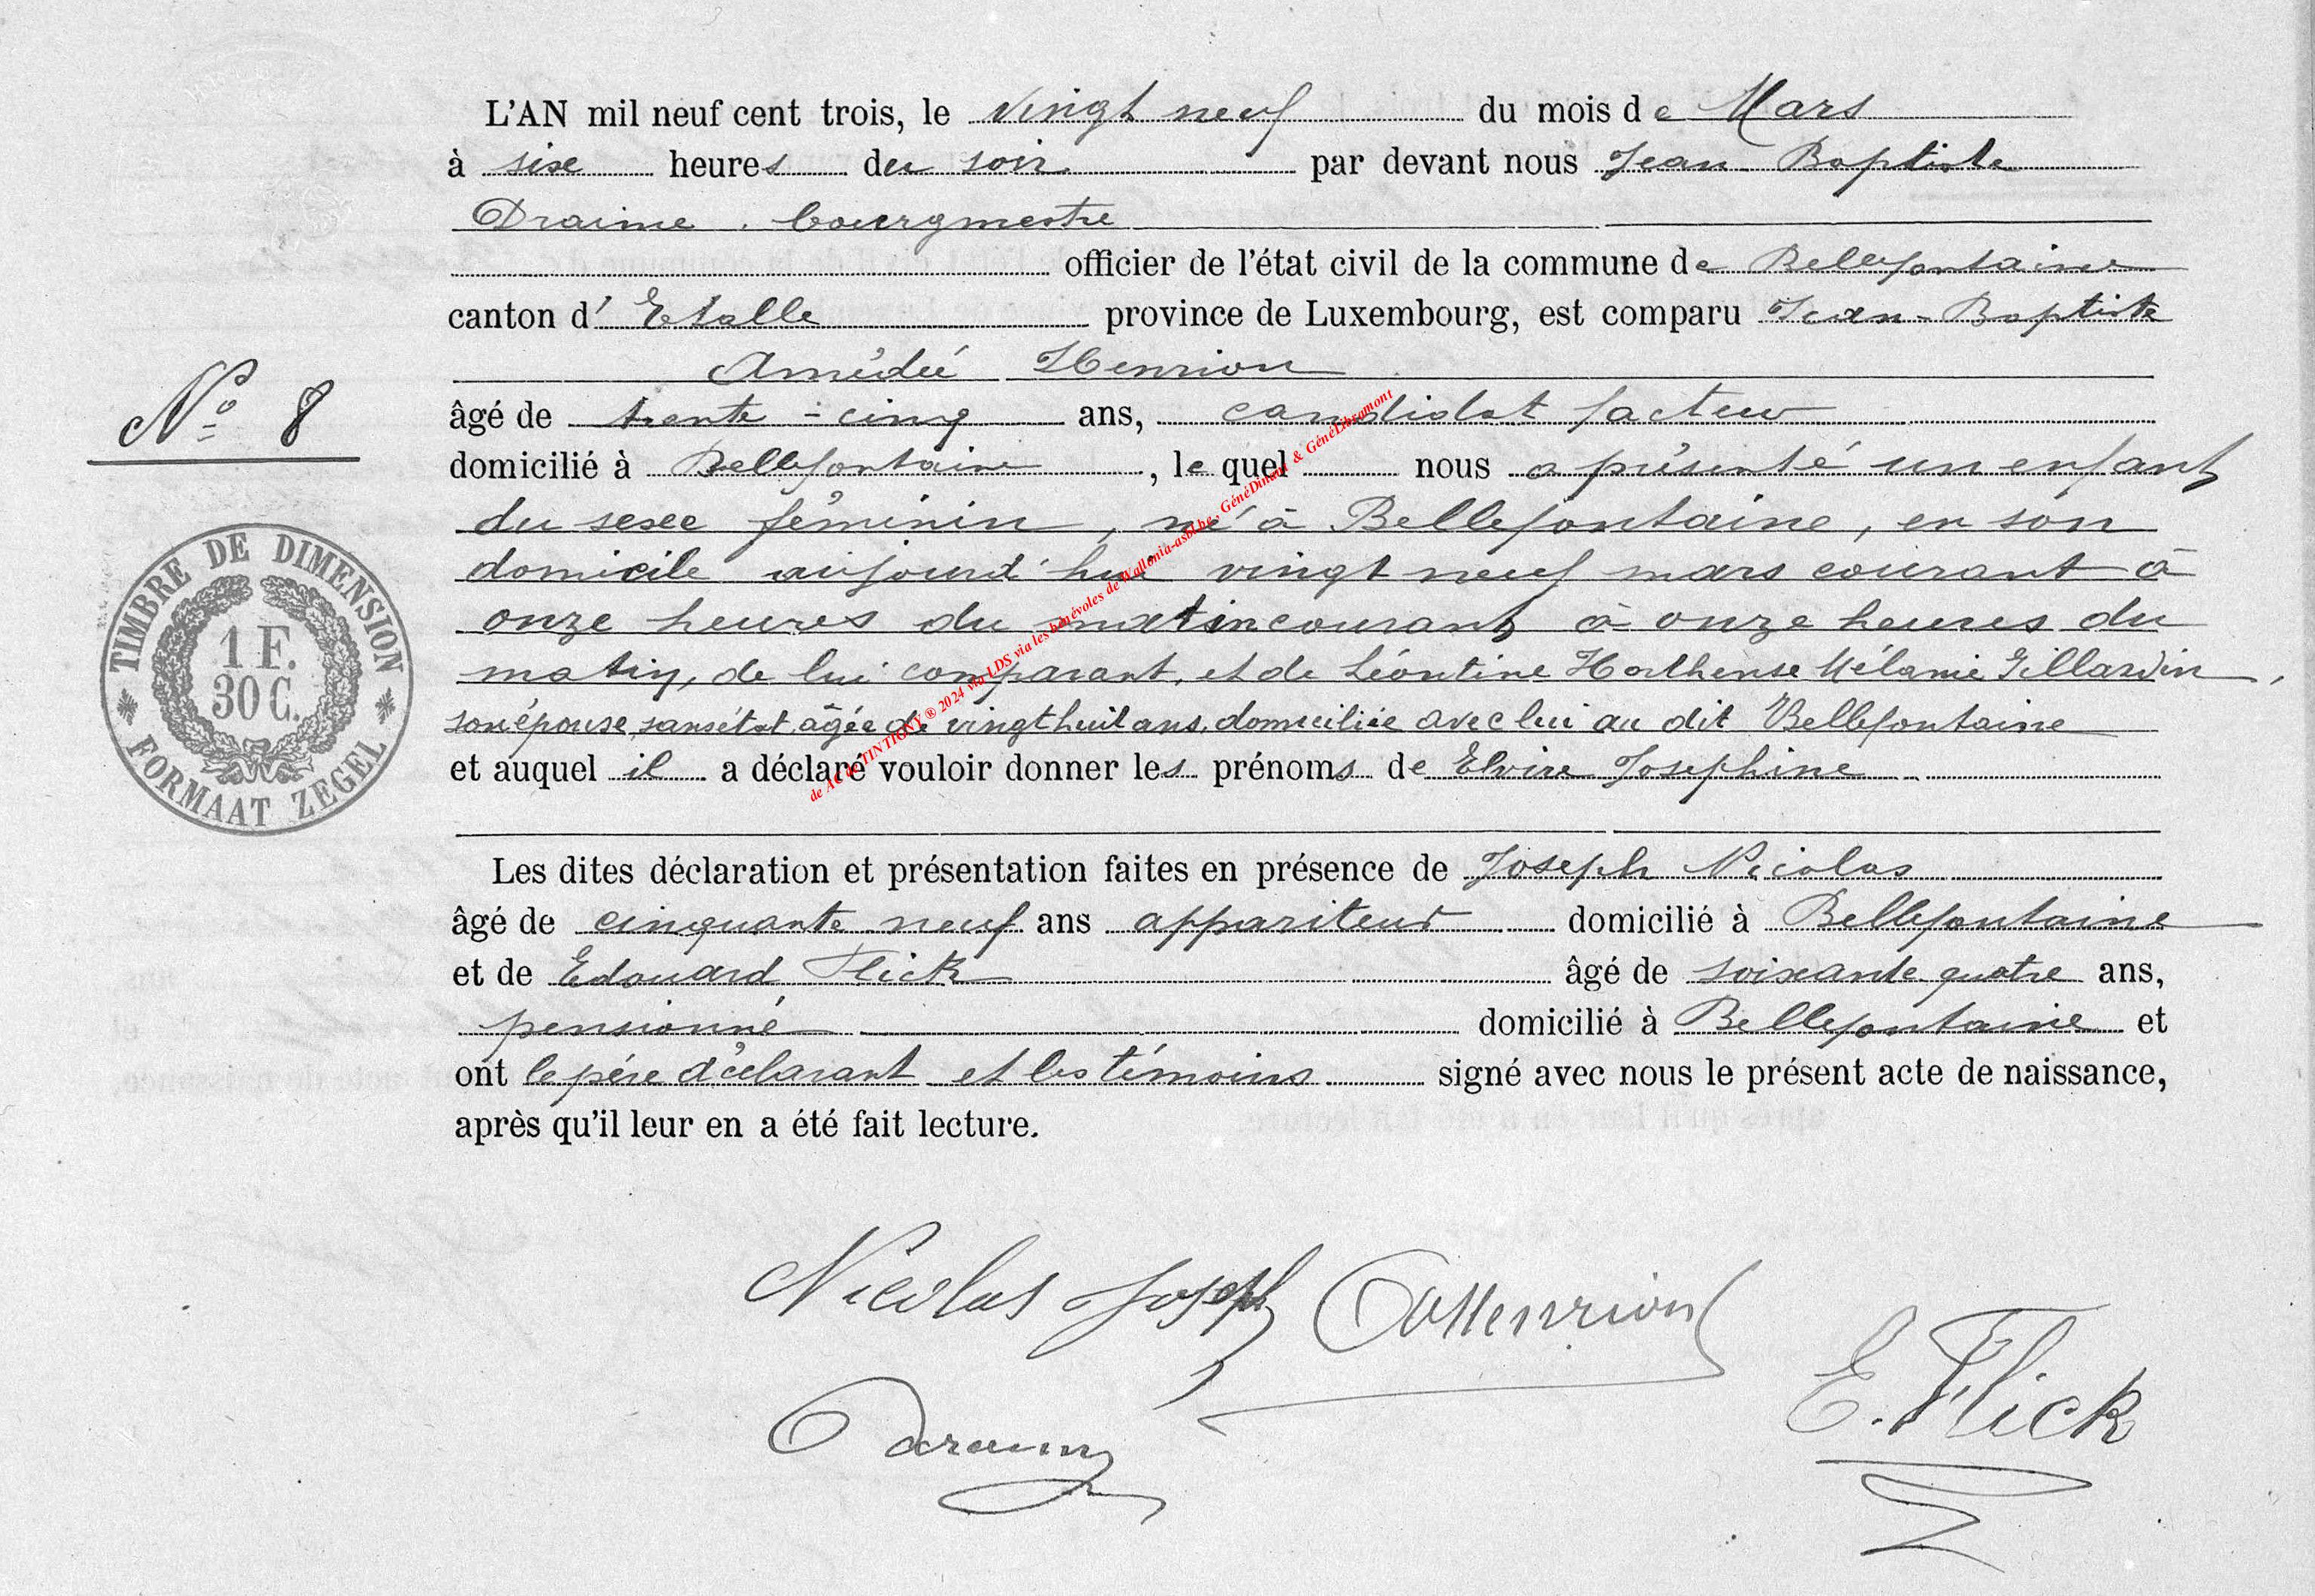 L'AN mil neuf cent trois, le vingt neuf du mois de Mars
à sixe heures du soir par devant nous Jean Baptiste
Draime, bourgmestre
officier de l'état civil de la commune de Bellefontaine
canton d' Etalle province de Luxembourg, est comparu Jean-Baptiste
Amédée Henrion
Nº 8
âgé de trente-cinq ans, candidat facteur
domicilié à Bellefontaine, le quel nous a présenté un enfant
du sexe féminin, né à Bellefontaine, en son
domicile aujourd'hui vingt neuf mars courant à
onze heures du matin courant à onze heures du
matin, de lui comparant, et de Léontine Horthense Mélanie Gillardin,
son épouse, sans état, âgée de vingt huit ans, domiciliée avec lui au dit Bellefontaine
et auquel il a déclaré vouloir donner les prénoms de Elvire Josephine
Les dites déclaration et présentation faites en présence de Joseph Nicolas
âgé de cinquante neuf ans appariteur domicilié à Bellefontaine
et de Edouard Flick âgé de soixante quatre ans,
pensionné domicilié à Bellefontaine et
ont le père déclarant et les témoins signé avec nous le présent acte de naissance,
après qu'il leur en a été fait lecture.
TIMBRE DE DIMENSION
1 F.
30 C.
FORMAAT ZEGEL
de AC de TINTIGNY ® 2024 via LDS via les bénévoles de Wallonia-asbl.be, GénéDinant & GénéLibramont
Nicolas Joseph Henrion
E. Flick